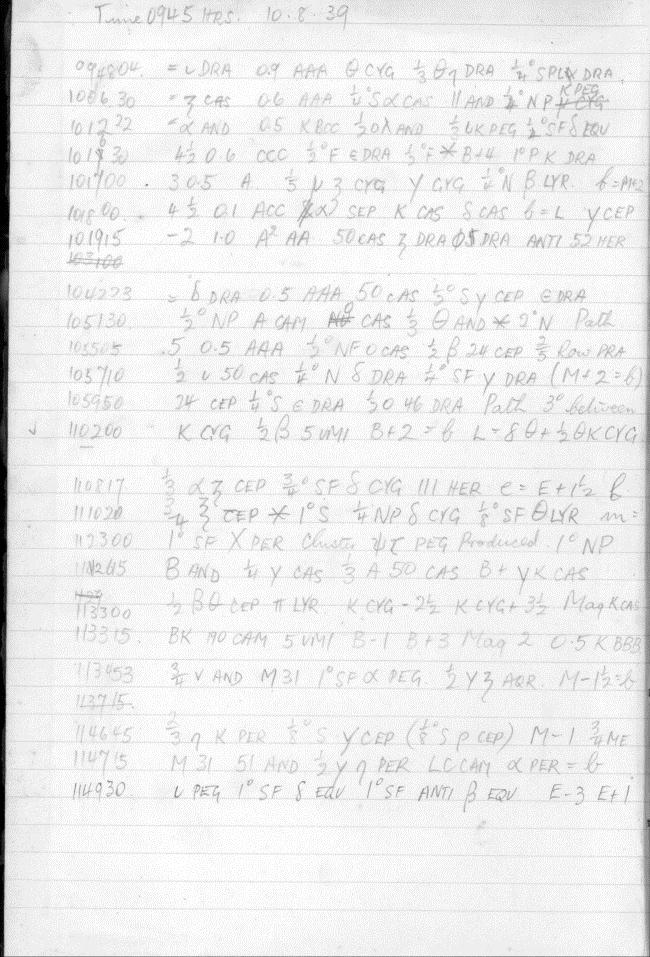 Time 0945 HRS. 10.8.39
094804. = ι DRA 0.9 AAA θ CYG 1/3 θ η DRA 1/4° SP DRA
K PEG
100630 = ζ CAS 0.6 AAA 1/4° S α CAS 11 AND 1/2° NP
101222 = α AND 0.5 KBCC 1/2 ο λ AND 1/2 ι K PEG 1/2° SF δ EQU
101630 4 1/2 0.6 CCC 1/2° F ε DRA 1/2° F * B+4 1° P K DRA
101700 . 3 0.5 A. 1/5 ν ζ CYG γ CYG 1/4° N β LYR. b =
101800 . 4 1/2 0.1 ACC SEP K CAS δ CAS b = L γ CEP
101915 -2 1.0 A² AA 50 CAS ζ DRA DRA ANTI 52 HER
103100
104223 = δ DRA 0.5 AAA 50 CAS 1/2° S γ CEP ε DRA
105130. 1/2° NP A CAM CAS 1/3 θ AND * 2° N Path
105505 .5 0.5 AAA 1/2° NF ο CAS 1/2 β 24 CEP 2/5 DRA
105710 1/2 ν 50 CAS 1/4° N δ DRA 1/4° SF γ DRA (M+2=b)
105950 24 CEP 1/4° S ε DRA 1/2 0 46 DRA Path 3° between
✓ 110200 K CYG 1/2 β 5 UMI B+2 = b L = δ θ + 1/2 θ K CYG
110817 1/3 α ζ CEP 3/4° SF δ CYG 111 HER e = E+1 1/2 b
111020 3/4 ξ CEP * 1° S 1/4 NP δ CYG 1/8° SF θ LYR m =
112300 1° SF X PER Cluster ψ τ PEG Produced. 1° NP
B AND 1/4 γ CAS 1/3 A 50 CAS B + γ K CAS
113300 1/2 β θ CEP π LYR. K CYG - 2 1/2 K CYG + 3 1/2 Mag K CAS
113315. BK CAM 5 UMI B-1 B+3 Mag 2 0.5 K BBB
113453 3/4 ν AND M31 1° SF α PEG. 1/2 γ ζ AQR. M-1 1/2 = b
113715.
114645 2/3 η K PER 1/8° S γ CEP (1/8° S ρ CEP) M-1 3/4 ME
114715 M31 51 AND 1/2 γ η PER LC CAM α PER = b
114930 υ PEG 1° SF δ EQU 1° SF ANTI β EQU E-3 E+1